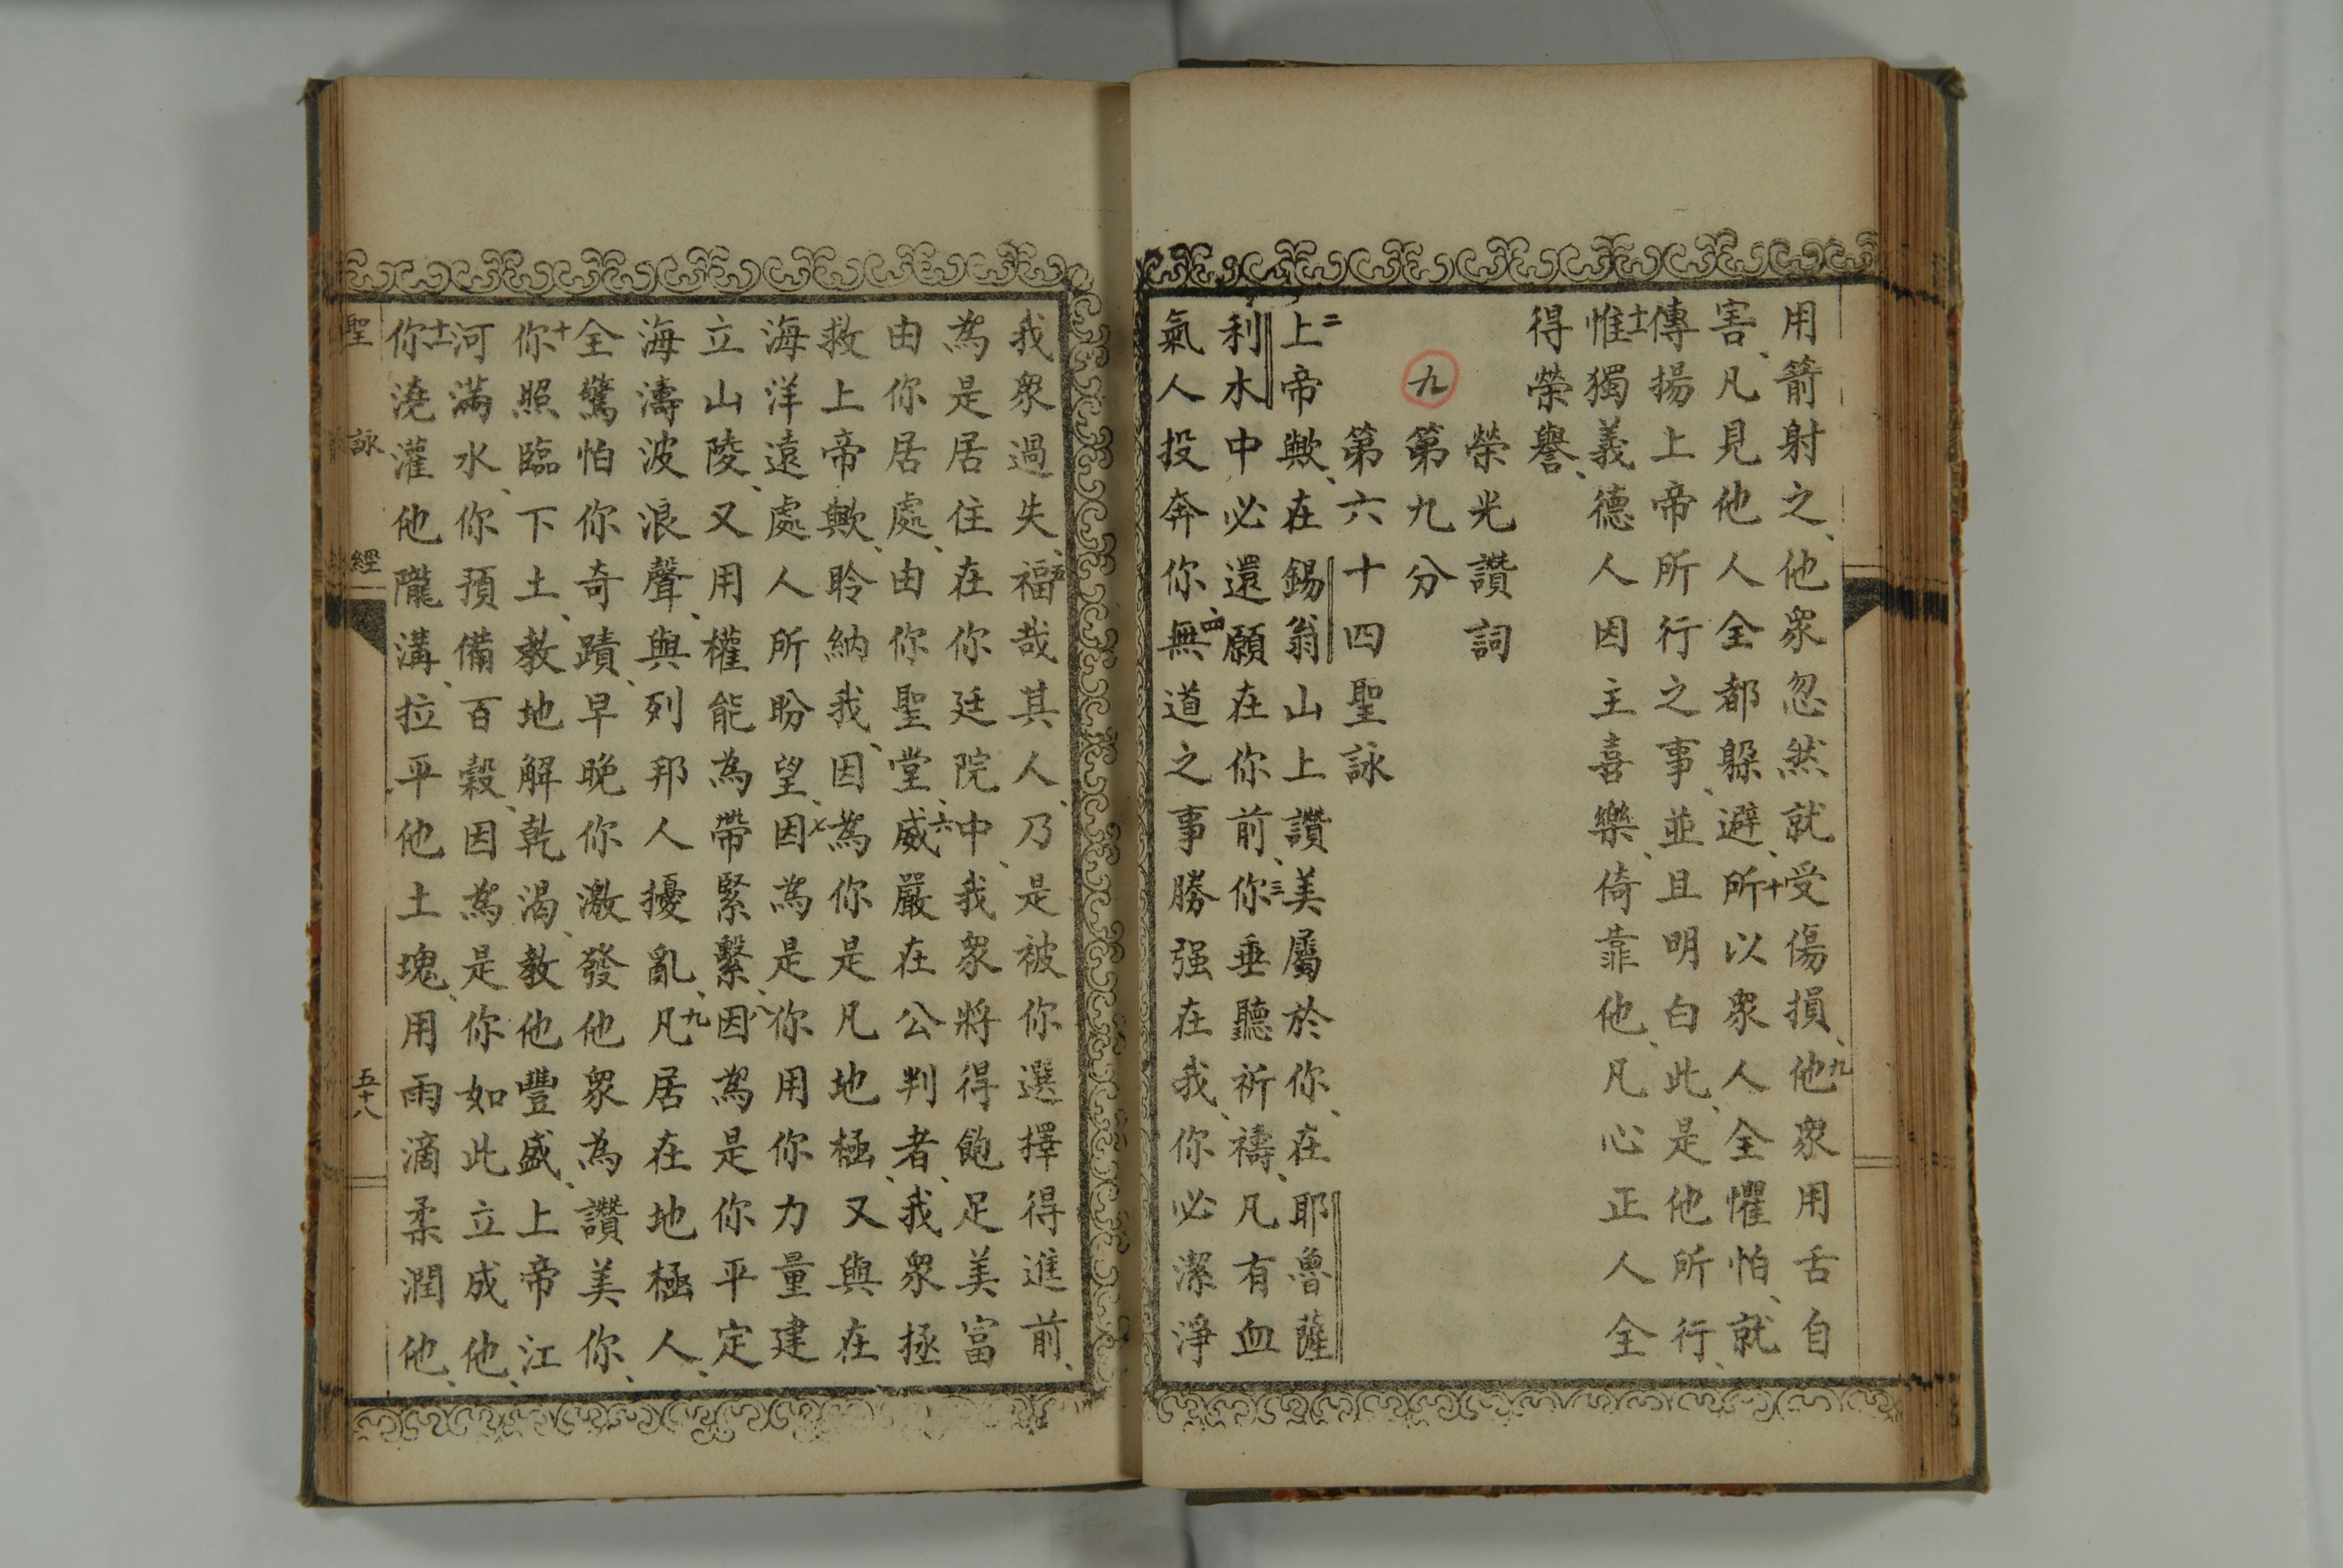 用箭射之、他眾忽然就受傷損、九他眾用舌自
害、凡見他人全都躲避、十所以眾人全懼怕、就
傳揚上帝所行之事、並且明白此、是他所行、
十一惟獨義德人因主喜樂、倚靠他、凡心正人全
得榮譽、
榮光讚詞
九 第九分
第六十四聖詠
二上帝歟、在錫翁山上讚美屬於你、在耶魯薩
利木中必還願在你前、三你垂聽祈禱、凡有血
氣人投奔你、四無道之事勝强在我、你必潔淨
我眾過失、五福哉其人、乃是被你選擇得進前、
為是居住在你廷院中、我眾將得飽足美富
由你居處、由你聖堂、六威嚴在公判者、我眾拯
救上帝歟、聆納我、因為你是凡地極、又與在
海洋遠處人所盼望、七因為是你用你力量建
立山陵、又用權能為帶緊繫、八因為是你平定
海濤波浪聲、與列邦人擾亂、九凡居在地極人、
全驚怕你奇蹟、早晚你激發他眾為讚美你、
十你照臨下土、教地解乾渴、教他豐盛、上帝江
河滿水、你預備百穀、因為是你如此立成他、
十一你澆灌他隴溝、拉平他土塊、用雨滴柔潤他、
聖詠經
五十八